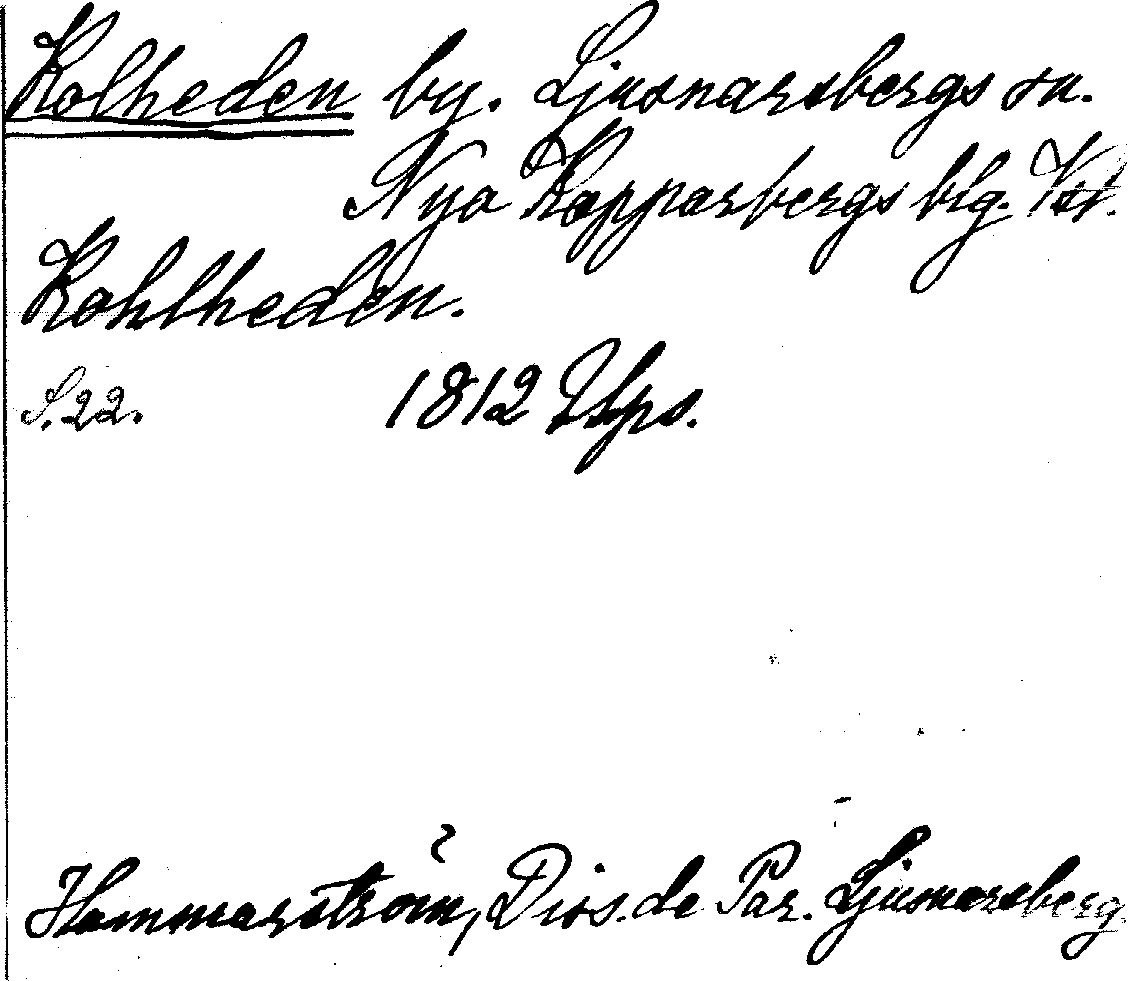 Kolheden by. Ljusnarsbergs sn.
Nya Kopparbergs blg. Vstm.
Kohlheden.
S. 22. 1812 Ups.
Hammarström, Diss. de Par. Ljusnarsberg.